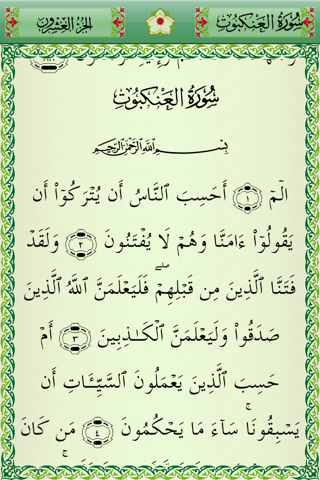 سُورَةُ العَنكَبُوت
الجُزءُ العِشرُون
سُورَةُ العَنكَبُوت
بِسْمِ ٱللَّهِ ٱلرَّحْمَٰنِ ٱلرَّحِيمِ
الٓمٓ ١ أَحَسِبَ ٱلنَّاسُ أَن يُتْرَكُوٓا۟ أَن
يَقُولُوٓا۟ ءَامَنَّا وَهُمْ لَا يُفْتَنُونَ ٢ وَلَقَدْ
فَتَنَّا ٱلَّذِينَ مِن قَبْلِهِمْ ۖ فَلَيَعْلَمَنَّ ٱللَّهُ ٱلَّذِينَ
صَدَقُوا۟ وَلَيَعْلَمَنَّ ٱلْكَٰذِبِينَ ٣ أَمْ
حَسِبَ ٱلَّذِينَ يَعْمَلُونَ ٱلسَّيِّـَٔاتِ أَن
يَسْبِقُونَا ۚ سَآءَ مَا يَحْكُمُونَ ٤ مَن كَانَ